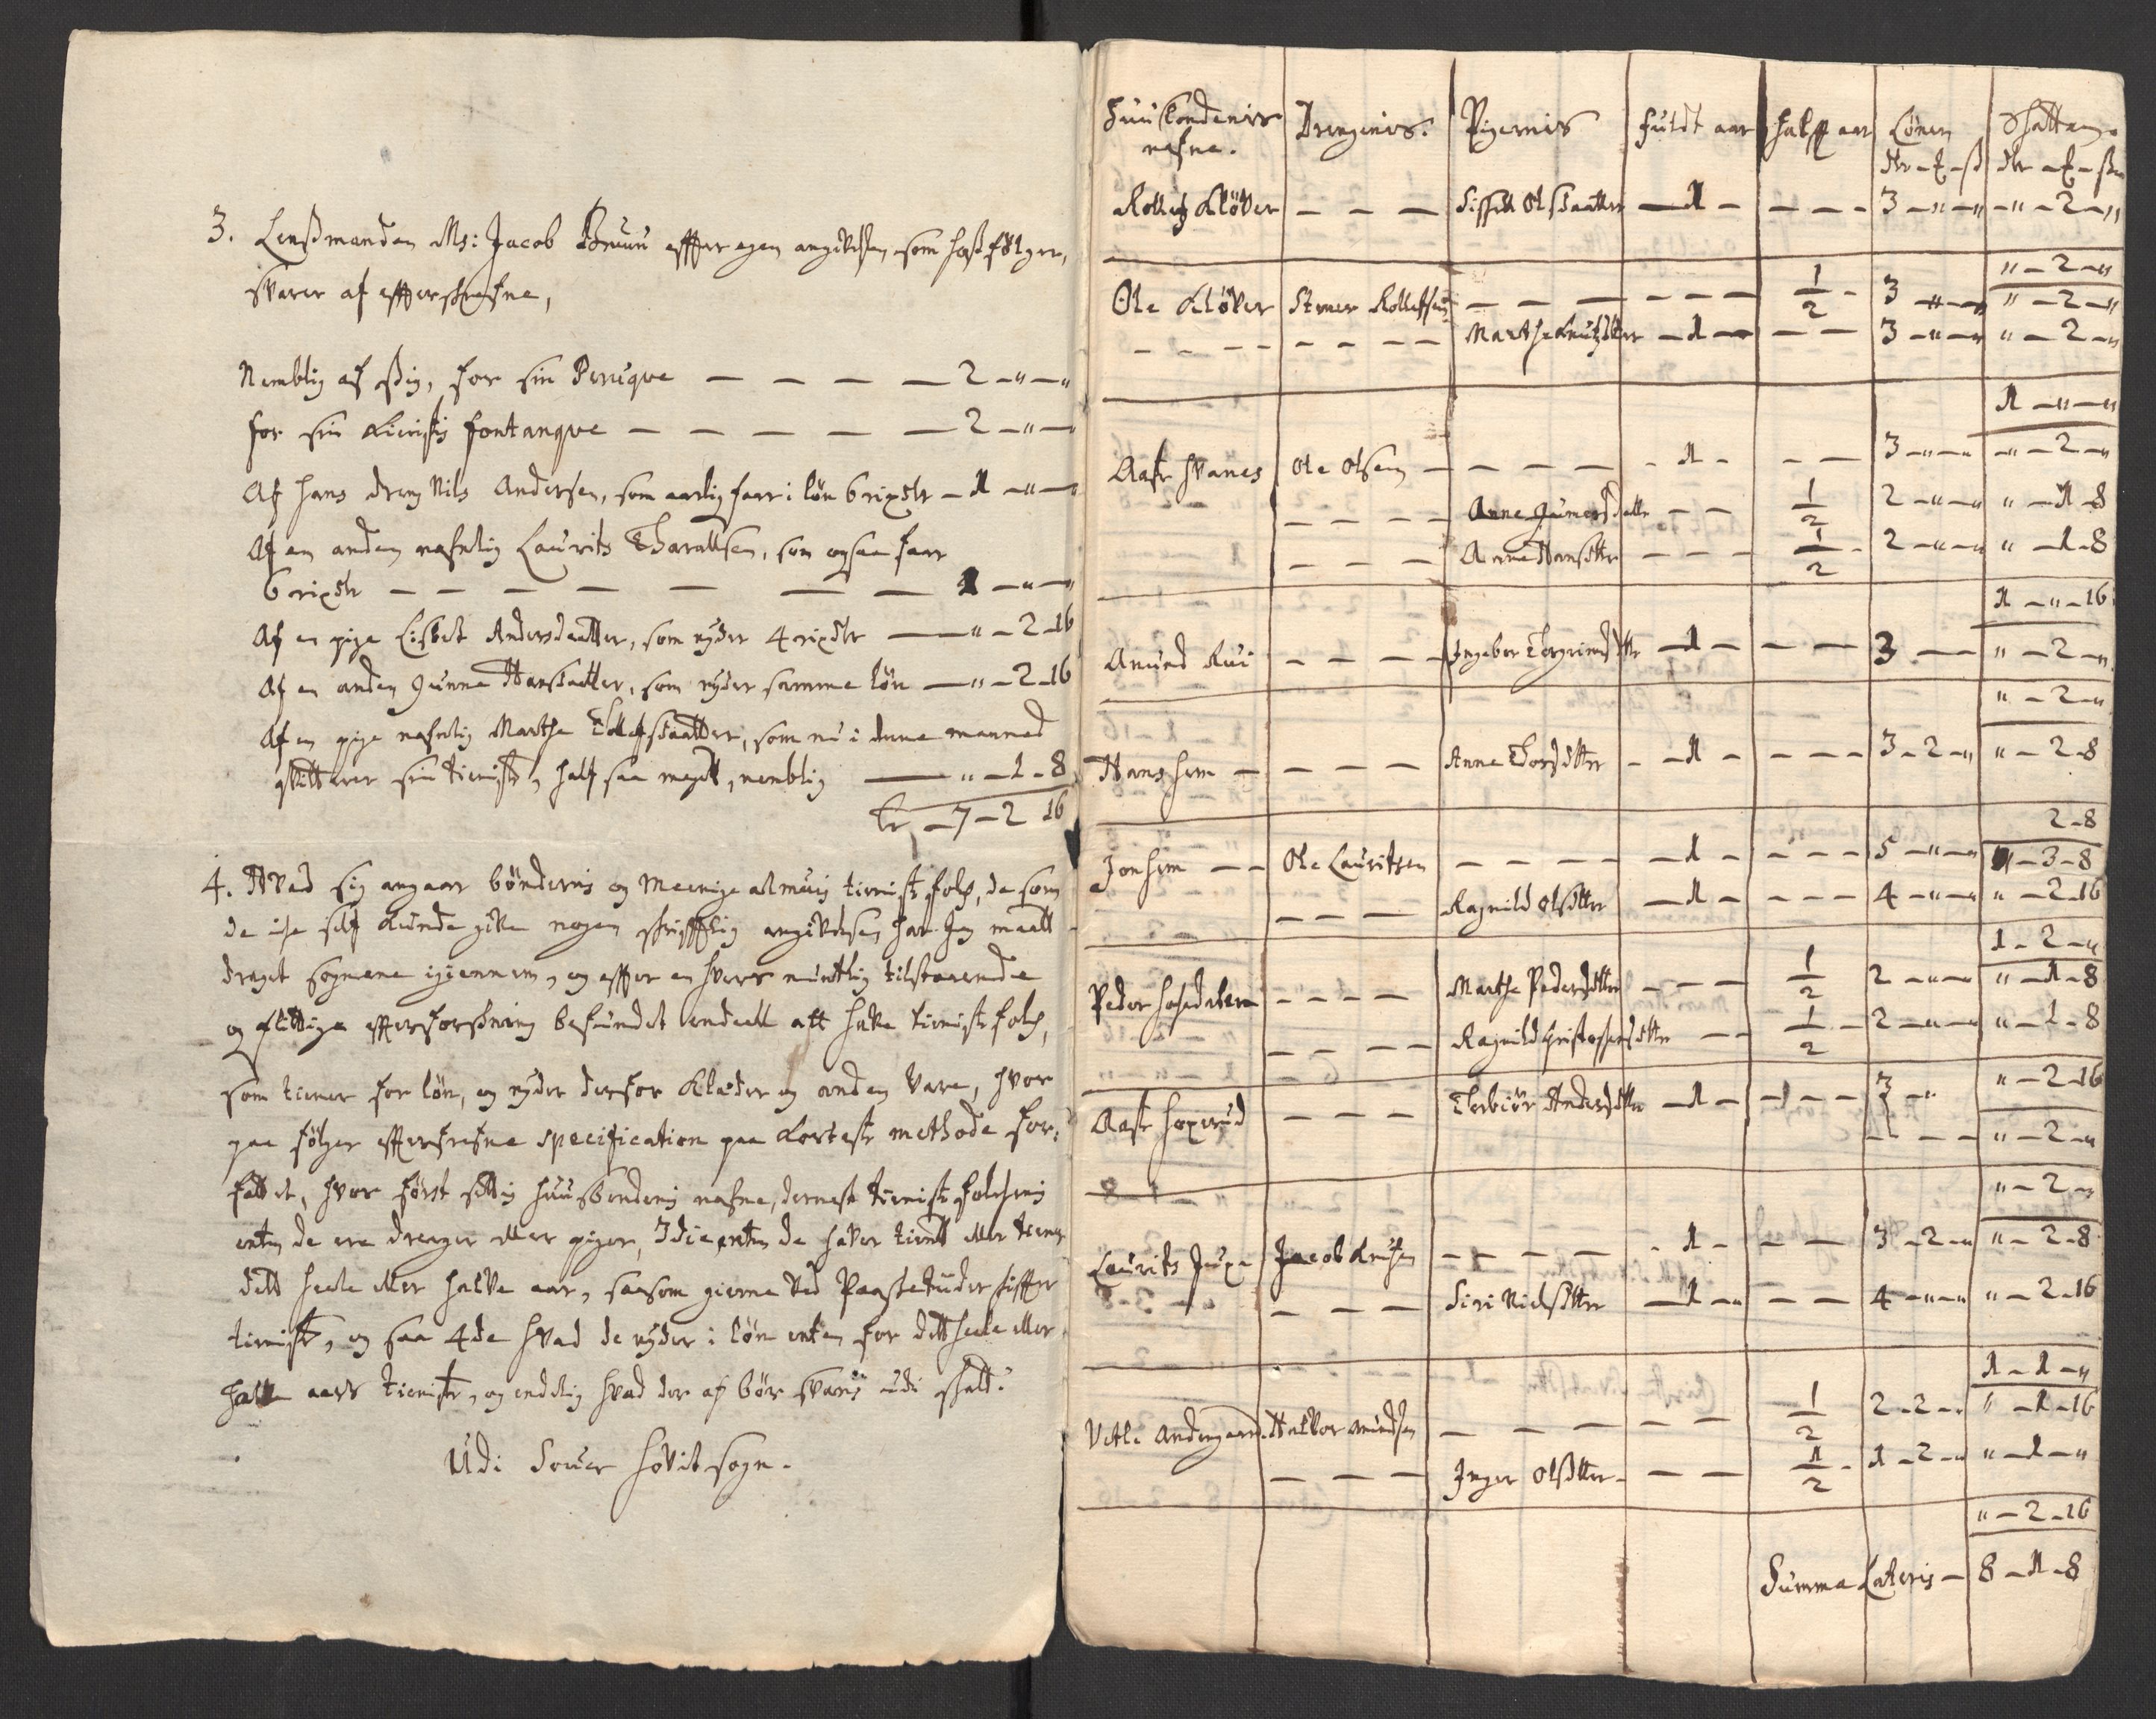 3. Lensmanden Ms: Jacob Bruun effter egen angivelsen som hosfølger,
svarer af effterskrefne,
Nemblig af sig, for sin Peruqve — — — — 2 - " - "
for sin Kieristis fontanqve — — — — — 2 - " - "
Af hans dreng Nils Andersen, som aarlig faar i løn 6 rixdr - 1 - " - "
Af en anden nafnlig Laurits Tharaldsen, som ogsaa faar
6 rixdr — — — — — — — 1 - " - "
Af en pige Lisbet Andersdaatter, som nyder 4 rixdr — " - 2 - 16
Af en anden Gunne Hansdaatter, som nyder samme løn — " - 2 - 16
Af en pige nafnlig Marthe Tollefsdaatter, som nu i denne maaned
qvitterer sin tieniste, half saa meget, nemblig — " - 1 - 8
Er - 7 - 2 16
4. Hvad sig angaar bøndernis og Meenige allmuis tienistefolch, da som
de iche self kunde give nogen skrifftlig angivelsen, har Jeg maatt
draget sognene igiennem, og effter en hvers mundtlig tilstaaende
og flittige effterforskning befundet endeell att have tienistefolch,
som tiener for løn, og nyder derfor Klæder og anden Vare, hvor
paa følger effterskrefne specification paa korteste methode for-
fattet, hvor først settis huusbondens nafne, dernest tienistefolchenis
enten de ere drenger eller piger, 3die enten de haver tient eller tiener
dett heele eller halve aar, saasom gierne ved Paasketuder skiffter
tieniste, og saa 4de hvad de nyder i løn enten for dett heele eller
halve aars tieniste, og endelig hvad der af bør svaris udi skatt.
Udi Souer hovit sogn.
Huusbondenis Drengenis. Pigernis fuldt aar half aar Lønen Skatten
nafne. dr - ƶ - ß dr - ƶ - ß
Rollef Kløver — — — Sissell Olsdaatter — 1 - — — — 3 - " - " " - 2 - "
" - 2 - "
Ole Kløver Stener Rollefsen — — — — — — 1/2 - 3 - " - " " - 2 - "
— — — — — — — Marthe Knutzdtter — 1 — — — 3 - " - " " - 2 - "
1 - " - "
Aase Hvanes Ole Olsen — — — — - 1 - — — 3 - " - " " - 2 - "
— — — — Anne Gunersdatter — — 1/2 2 - " - " " - 1 - 8
— — — Anne Hansdtter — — — 1/2 - 2 - " - " " - 1 - 8
1 - " - 16
Amund Rui — — — — Ingebor Torgrimsdtter — 1 - — — 3 — " - 2 - "
" - 2 - "
Hans hem — — — — — Anne Torsdtter — 1 - — — — 3 - 2 - " " - 2 - 8
2 - 8
Jon hem — — Ole Lauritsen — — — — — 1 - — — — 5 - " - " " - 3 - 8
— — — Ragnild Olsdtter — 1 - — — — 4 - " - " " - 2 - 16
1 - 2 - "
Peder — — — — Marthe Pedersdtter — — — 1/2 2 - " - " " - 1 - 8
— — — — Ragnild Christophersdtter — — 1/2 - 2 - " - " " - 1 - 8
" - 2 - 16
Aase Hoxerud — — — Torbiør Andersdtter — 1 - — — — 3 - "
— — — " - 2 - "
" - 2 - "
Laurits Juxe Jacob Knutsen — — — — - 1 - — — 3 - 2 - " " - 2 - 8
— — — Siri Nielsdtter — 1 - " — — 4 - " - " " - 2 - 16
1 - 1 - "
Vetle Andengaard. Halvor Amundsen — — — — — 1/2 2 - 2 - " " - 1 - 16
— — — Inger Olsdtter - — — 1/2 - 1 - 2 - " " - 1 - "
" - 2 - 16
Summa Lateris — 8 - 1 - 8